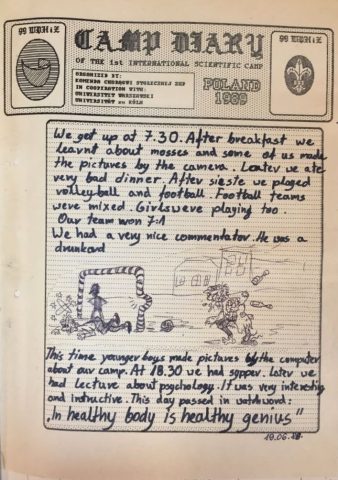 99 WDH i Z
CAMP DIARY
99 WDH i Z
OF THE 1st INTERNATIONAL SCIENTIFIC CAMP
ORGANIZED BY:
KOMENDA CHORĄGWI STOŁECZNEJ ZHP
IN COOPERATION WITH:
UNIWERSYTET WARSZAWSKI
UNIVERSITÄT zu KÖLN
POLAND
1989
We get up at 7.30. After breakfast we
learnt about mosses and some of us made
the pictures by the camera. Loater we ate
very bad dinner. After sieste we played
volleyball and football. Football teams
were mixed. Girls were playing too.
Our team won 7:1
We had a very nice commentator. He was a
drunkard
This time younger boys made pictures by the computer
about our camp. At 18.30 we had supper. Later we
had Lecture about psychology. It was very interesting
and instructive. This day passed in watchword:
"In healthy body is healthy genius"